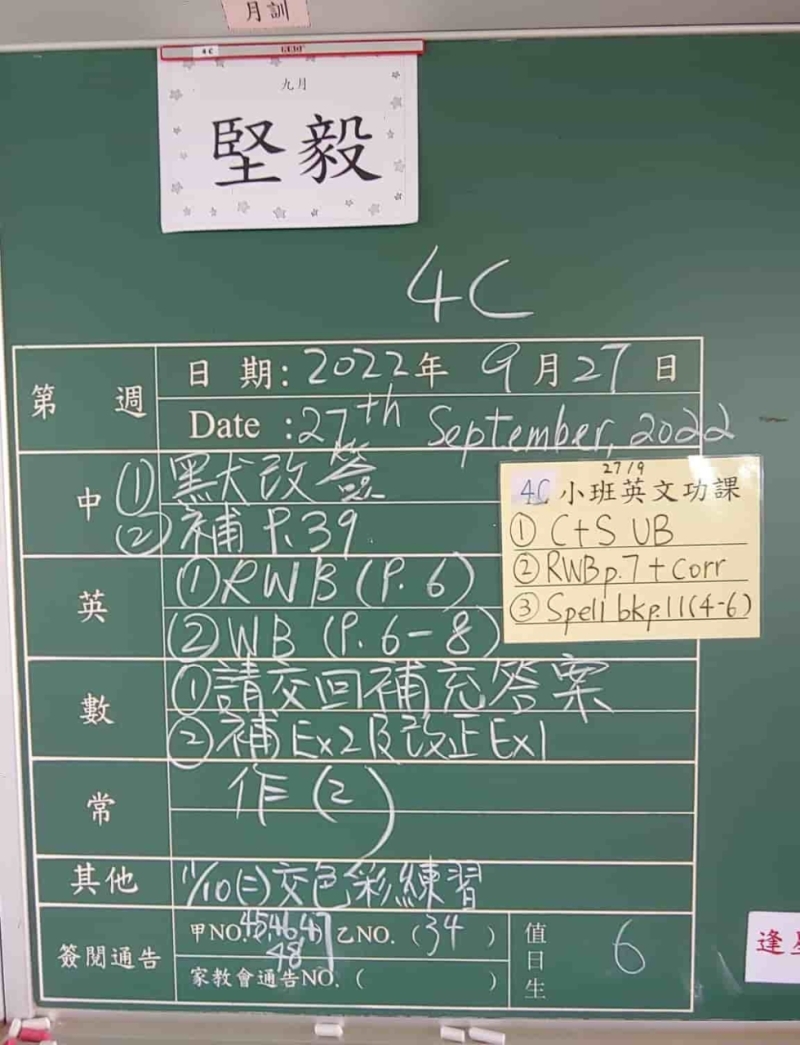 月訓
4C
九月
堅毅
4C
第 週
日 期: 2022年 9月27日
Date : 27th September, 2022
中
①默改簽
②補 P.39
英
①RWB (P. 6)
②WB (P. 6-8)
27/9
4C 小班英文功課
① C+S UB
② RWB p.7 + corr
③ Spell bk p.11 (4-6)
數
①請交回補充答案
②補Ex2及改正Ex1
常
作(2)
其他
11/10(二)交色彩練習
簽閱通告
甲NO. 45,46,47 乙NO. (34)
48
家教會通告NO. ( )
值日生
6
逢星